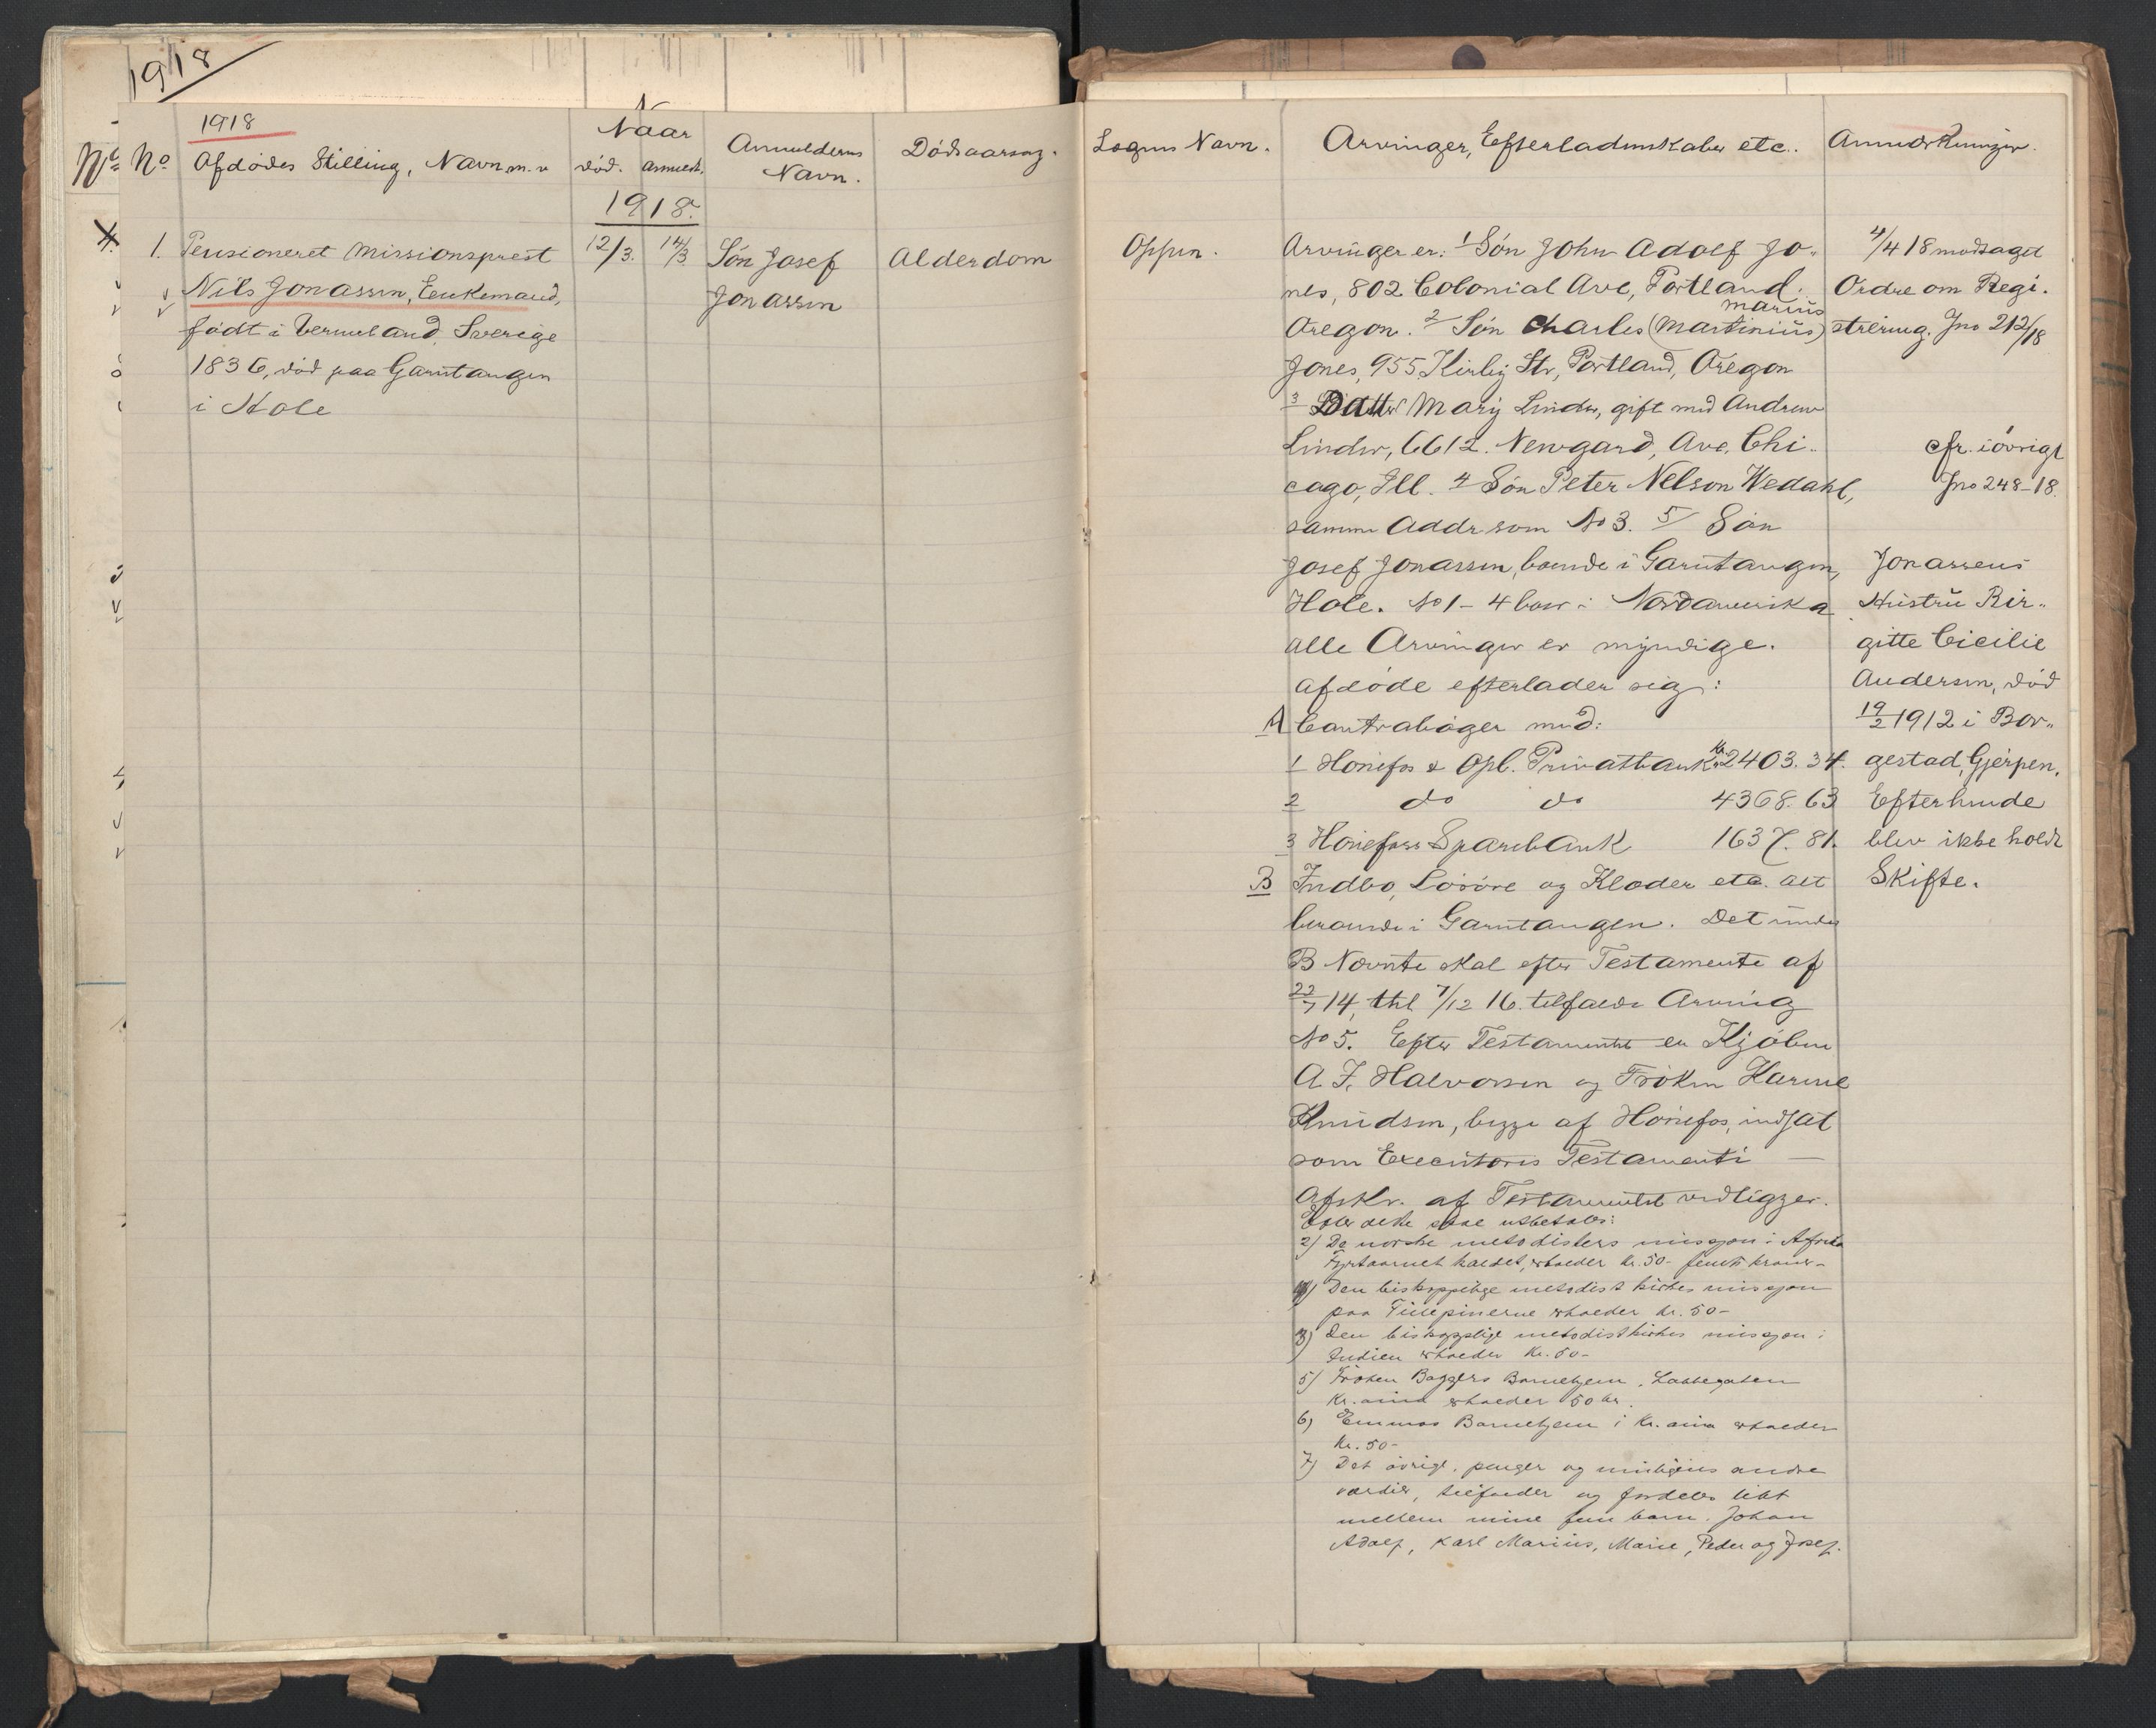 1918
1918
No No Afdødes Stilling, Navn m.v
Naar
død. anmeldt.
Anmelderens
Navn.
Dødsaarsag.
1918.
1. Pensioneret Missionsprest
Nils Jonassen, Enkemand,
født i Vermeland, Sverige
1836, død paa Garntangen
i Hole
12/3. 14/3
Søn Josef
Jonassen
Alderdom
Lægens Navn. Arvinger, Efterladenskaber etc. Anmærkninger.
Oppen.
Arvinger er: 1 Søn John Adolf Jo-
nes, 802 Colonial Ave, Portland.
marius
Oregon. 2/ Søn Charles (Martinius)
Jones, 955, Kirby Str, Portland, Oregon
3 Datter Mary Linder, gift med Andrew
Linder, 6612. Newgard, Ave. Chi-
cago, Ill. 4 Søn Peter Nelson Wedahl,
samme Addr som No 3. 5/ Søn
Josef Jonassen, boende i Garntangen,
Hole. No 1 - 4 boer i Nordamerika
alle Arvinger er myndige.
Afdøde efterlader sig:
A Contrabøger med:
1 Hønefos & Opl. Privatbank Kr. 2403.34.
2 do do 4368.63
3 Hønefoss Sparebank 1637.81.
B Indbo, Løsøre og Klæder etc. alt
beroende i Garntangen. Det under
B Nævnte skal efter Testamente af
22/7 14, thl 7/12 16. tilfalde Arving
No 5. Efter Testamentet er Kjøbm
A. F. Halvorsen og Frøken Karine
Knudsen, begge af Hønefos, indsat
som Executores Testamenti —
Afskr. af Testamentet vedligger.
Efter dette skal utbetales:
2) De norske metodisters missjon i Afrika
Fyrtaarnet kaldet, erholder kr. 50- femti kroner-
4) Den biskoppelige metodist kirkes missjon
paa Filipinerne erholder kr. 50-
3) Den biskoppelige metodistkirkes missjon i
Indien erholder kr. 50-
5) Frøken Baggers Barnehjem, Lakkegaten
Kr.ania erholder 50 kr.
6) Emmas Barnehjem i Kr.ania erholder
kr. 50-
7) Det øvrige, penger og muligens andre
værdier, tilfalder og fordeles likt
mellem mine fem barn. Johan
Adolf, Karl Marius, Marie, Peder og Josef.
4/4 18 modtaget
Ordre om Regi-
strering. Jno 212/18
cfr. iøvrigt
Jno 248-18.
Jonassens
Hustru Bir-
gitte Cicilie
Andersen, død
19/2 1912 i Bor-
gestad, Gjerpen,
Efter hende
blev ikke holdt
Skifte.